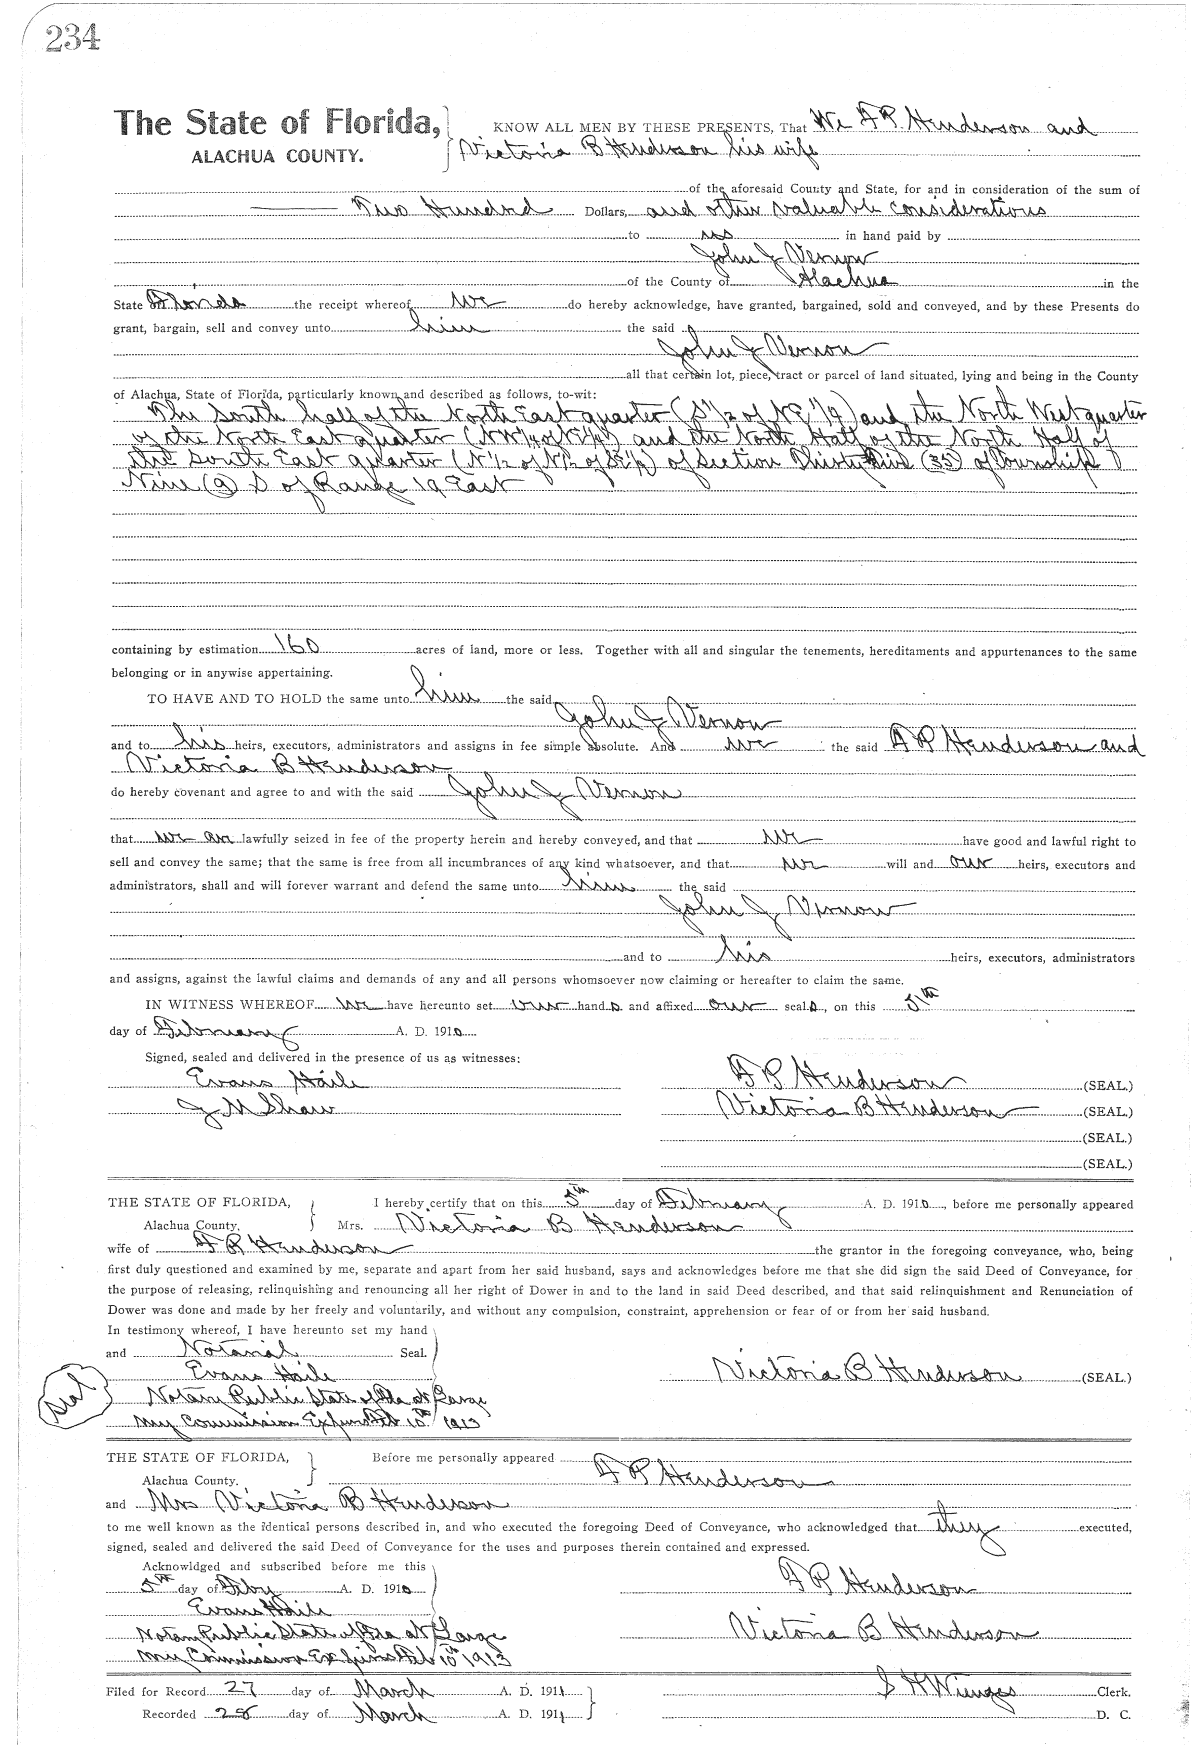 234
The State of Florida,
ALACHUA COUNTY.
KNOW ALL MEN BY THESE PRESENTS, That We F P Henderson and
Victoria B Henderson his wife
of the aforesaid County and State, for and in consideration of the sum of
Two Hundred Dollars, and other valuable considerations
to us in hand paid by
John J Vernon
of the County of Alachua in the
State of Florida the receipt whereof we do hereby acknowledge, have granted, bargained, sold and conveyed, and by these Presents do
grant, bargain, sell and convey unto him the said
John J Vernon
all that certain lot, piece, tract or parcel of land situated, lying and being in the County
of Alachua, State of Florida, particularly known and described as follows, to-wit:
The South half of the North East quarter (S 1/2 of NE 1/4) and the North West quarter
of the North East quarter (NW 1/4 of NE 1/4) and the North Half of the North Half of
the South East quarter (N 1/2 of N 1/2 of SE 1/4) of Section Thirty (33) of Township
Nine (9) S of Range 19 East
containing by estimation 160 acres of land, more or less. Together with all and singular the tenements, hereditaments and appurtenances to the same
belonging or in anywise appertaining.
TO HAVE AND TO HOLD the same unto him the said
John J Vernon
and to his heirs, executors, administrators and assigns in fee simple absolute. And we the said F P Henderson and
Victoria B Henderson
do hereby covenant and agree to and with the said John J Vernon
that we are lawfully seized in fee of the property herein and hereby conveyed, and that we have good and lawful right to
sell and convey the same; that the same is free from all incumbrances of any kind whatsoever, and that we will and our heirs, executors and
administrators, shall and will forever warrant and defend the same unto him the said
John J Vernon
and to his heirs, executors, administrators
and assigns, against the lawful claims and demands of any and all persons whomsoever now claiming or hereafter to claim the same.
IN WITNESS WHEREOF we have hereunto set our hands and affixed our seals, on this 5th
day of February A. D. 1910
Signed, sealed and delivered in the presence of us as witnesses:
Evans Haile F P Henderson (SEAL.)
J M Shaw Victoria B Henderson (SEAL.)
(SEAL.)
(SEAL.)
THE STATE OF FLORIDA, I hereby certify that on this 5th day of February A. D. 1910, before me personally appeared
Alachua County. Mrs. Victoria B Henderson
wife of F P Henderson the grantor in the foregoing conveyance, who, being
first duly questioned and examined by me, separate and apart from her said husband, says and acknowledges before me that she did sign the said Deed of Conveyance, for
the purpose of releasing, relinquishing and renouncing all her right of Dower in and to the land in said Deed described, and that said relinquishment and Renunciation of
Dower was done and made by her freely and voluntarily, and without any compulsion, constraint, apprehension or fear of or from her said husband.
In testimony whereof, I have hereunto set my hand
and Notarial Seal.
Evans Haile Victoria B Henderson (SEAL.)
seal Notary Public State of Fla at Large
My Commission Expires Feb 10th 1913
THE STATE OF FLORIDA, Before me personally appeared F P Henderson
Alachua County.
and Mrs Victoria B Henderson
to me well known as the identical persons described in, and who executed the foregoing Deed of Conveyance, who acknowledged that they executed,
signed, sealed and delivered the said Deed of Conveyance for the uses and purposes therein contained and expressed.
Acknowldged and subscribed before me this
5th day of Feby A. D. 1910 F P Henderson
Evans Haile
Notary Public State of Fla at Large Victoria B Henderson
My Commission Expires Feb 10th 1913
Filed for Record 27 day of March A. D. 1911 S H Wienges Clerk.
Recorded 28 day of March A. D. 1911 D. C.